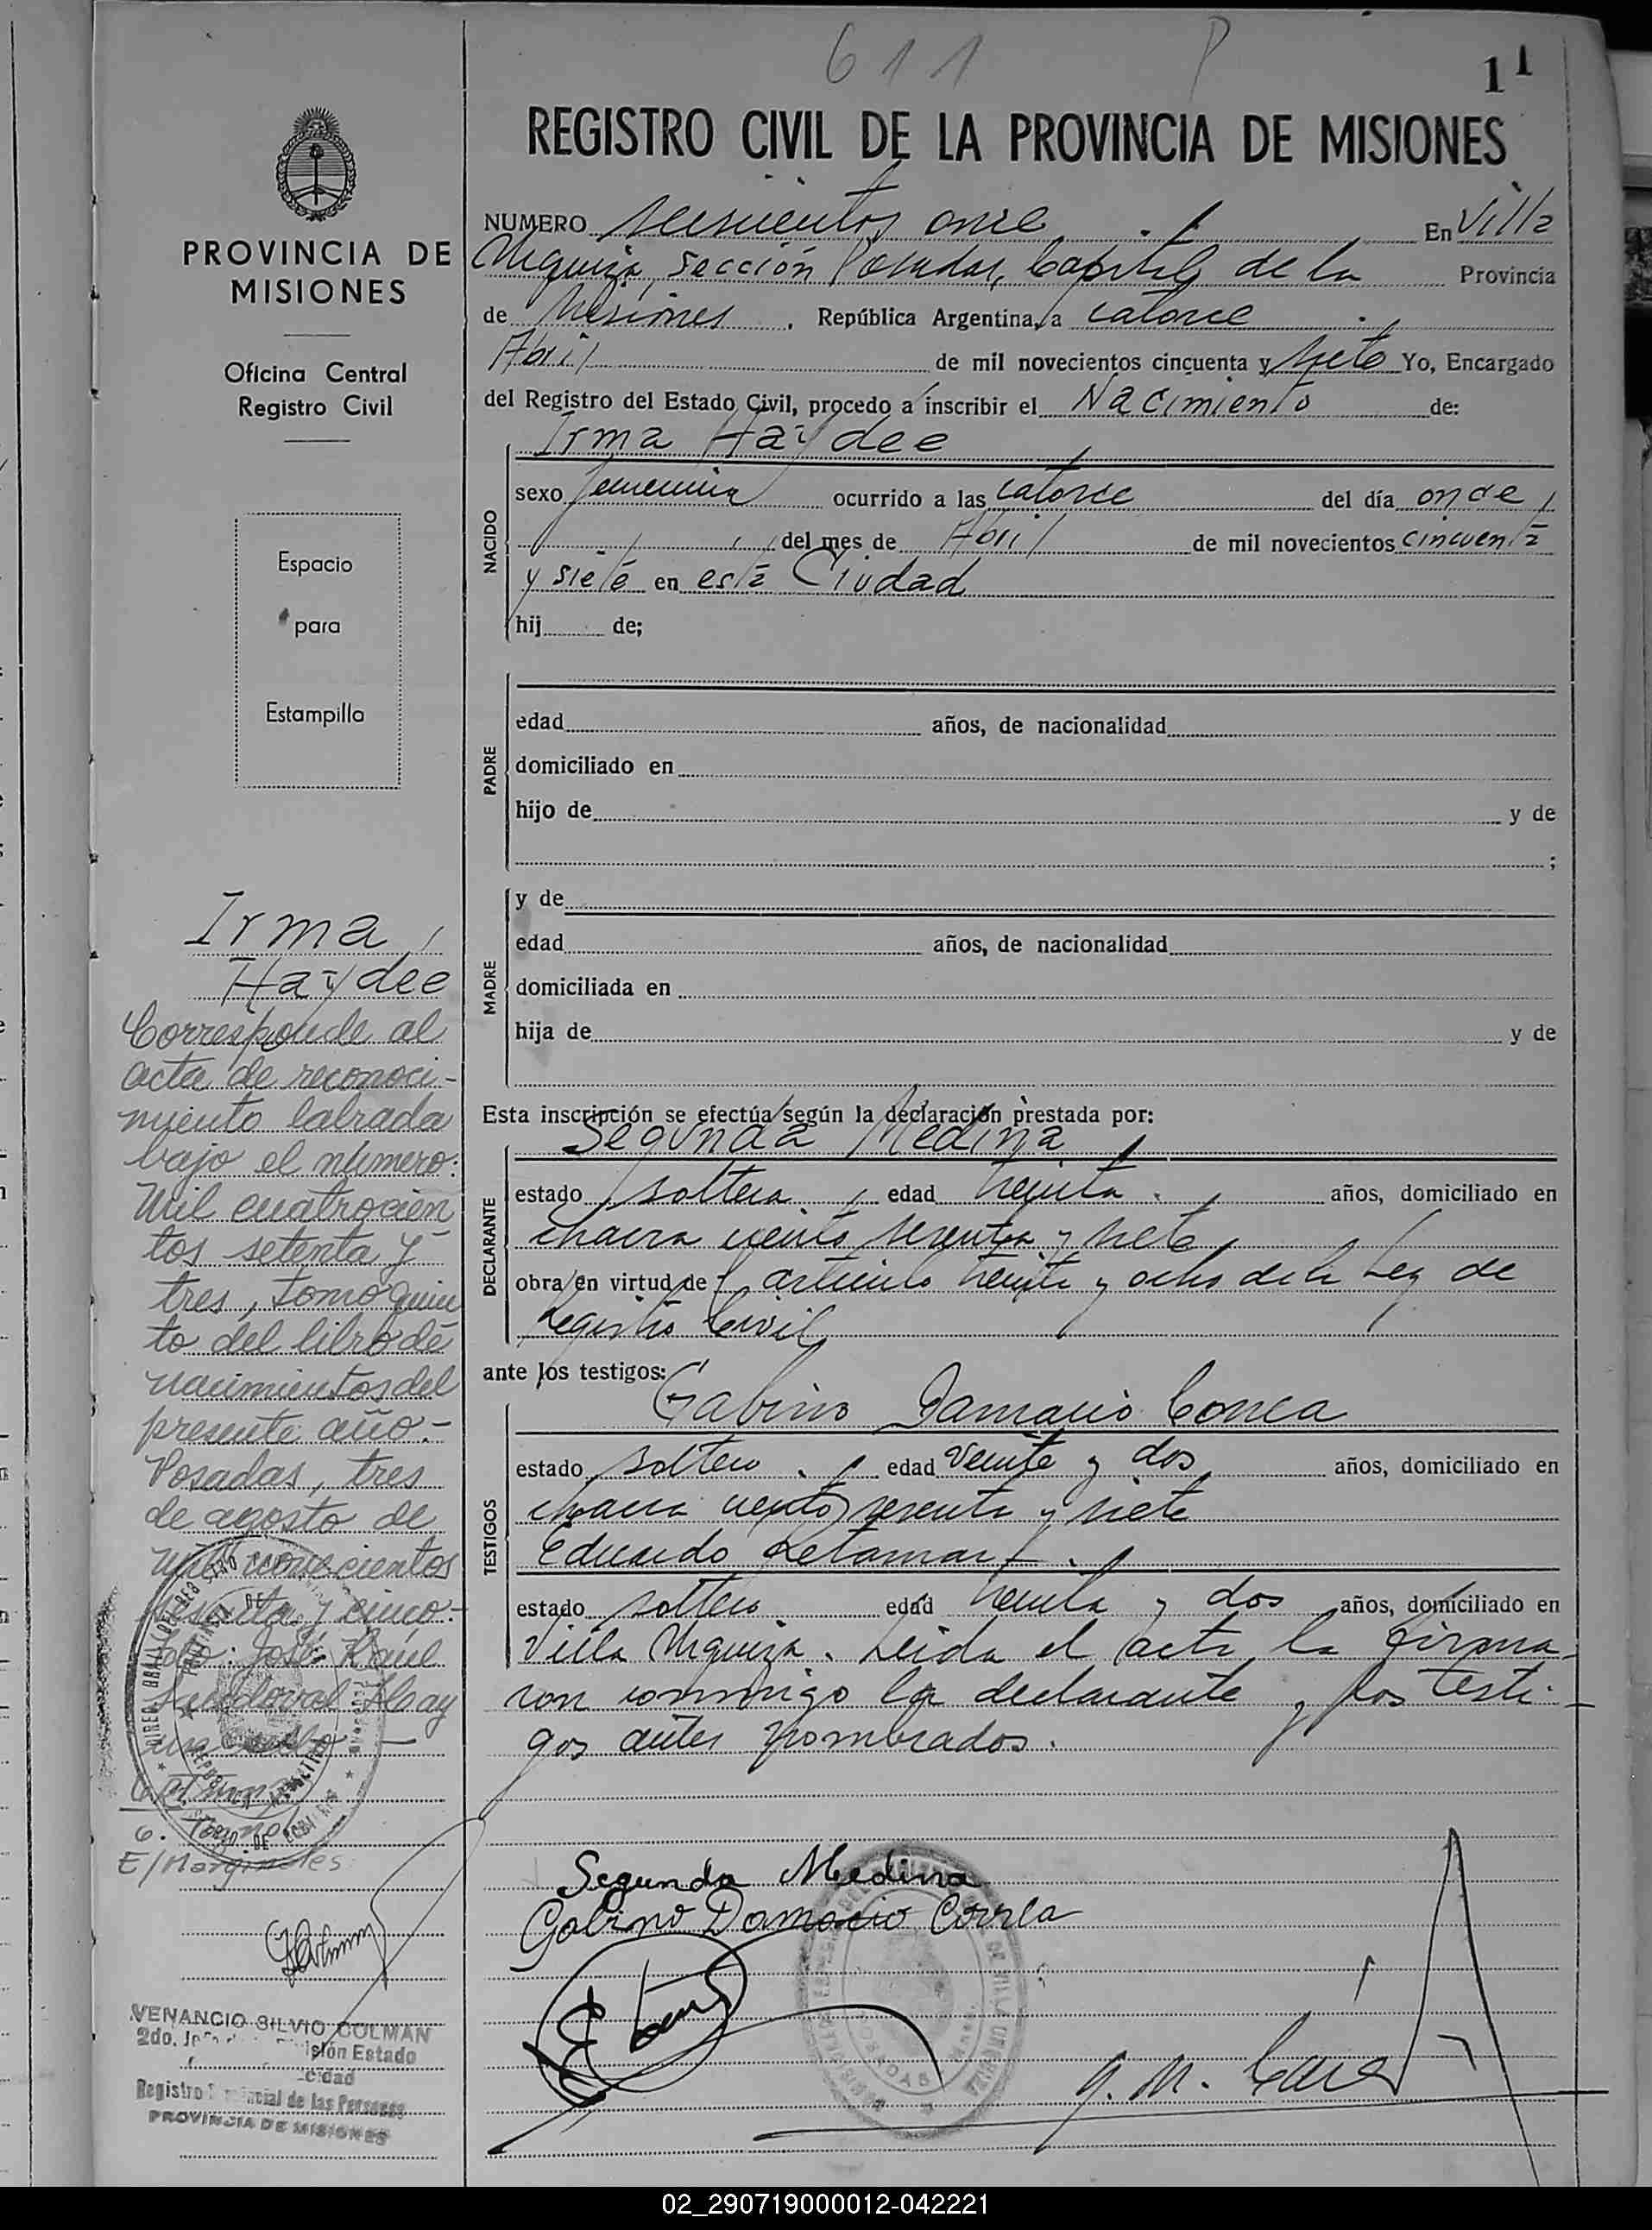 611 P 11
REGISTRO CIVIL DE LA PROVINCIA DE MISIONES
NUMERO seiscientos once En Villa
Urquiza, Sección Posadas, Capital de la Provincia
de Misiones, República Argentina, a catorce
Abril de mil novecientos cincuenta y siete Yo, Encargado
del Registro del Estado Civil, procedo a inscribir el Nacimiento de:
NACIDO
Irma Haydee
sexo femenina ocurrido a las catorce del día once
del mes de Abril de mil novecientos cincuenta
y siete en esta Ciudad
hij de;
PADRE
edad años, de nacionalidad
domiciliado en
hijo de y de
;
MADRE
y de
edad años, de nacionalidad
domiciliada en
hija de y de
Esta inscripción se efectúa según la declaración prestada por:
DECLARANTE
Segunda Medina
estado soltera edad treinta años, domiciliado en
chacra ciento sesenta y siete
obra en virtud de artículo treinta y ocho de la Ley de
Registro Civil
ante los testigos:
TESTIGOS
Gabino Damacio Correa
estado soltero edad veinte y dos años, domiciliado en
chacra ciento sesenta y siete
Eduardo Retamar
estado soltero edad treinta y dos años, domiciliado en
Villa Urquiza. Leida el acta la firma
ron conmigo la declarante y los testi-
gos antes nombrados.
Segunda Medina
Gabino Damacio Correa
PROVINCIA DE
MISIONES
Oficina Central
Registro Civil
Espacio
para
Estampilla
Irma
Haydee
Corresponde al
acta de reconoci-
miento labrada
bajo el número:
Mil cuatrocien
tos setenta y
tres, tomo quin
to del libro de
nacimientos del
presente año.-
Posadas, tres
de agosto de
mil novecientos
sesenta y cinco.-
José Raúl
Sandoval Hay
un sello.-
E/Marginales
VENANCIO SILVIO COLMAN
2do. Estado
Registro Provincial de las Personas
PROVINCIA DE MISIONES
02_290719000012-042221